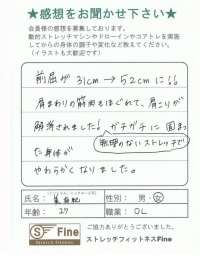 ★感想をお聞かせ下さい★
会員様の感想を募集しております。
動的ストレッチマシンやドローインやコアトレを実施
してからの身体の調子や変化など教えてください。
（イラストも大歓迎です）
前屈が 31cm → 52cmに!!
肩まわりの筋肉もほぐれて、肩こりが
解消されました! ガチガチに固まっ
無理のないストレッチで
た身体が
やわらかくなりました。
氏名：
性別： 男・女
年齢： 27
職業： OL
S Fine
Stretch Fitness
ご協力ありがとうございました。
ストレッチフィットネスFine